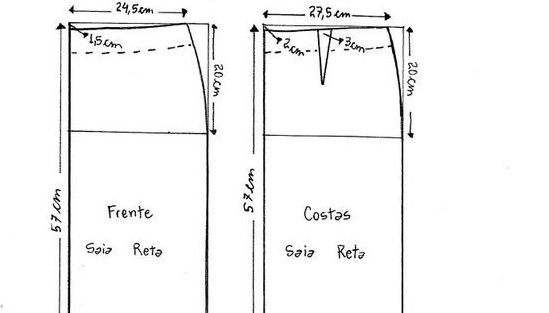 24,5cm
1,5cm
20cm
57cm
Frente
Saia Reta
27,5cm
2cm
3cm
20cm
57cm
Costas
Saia Reta